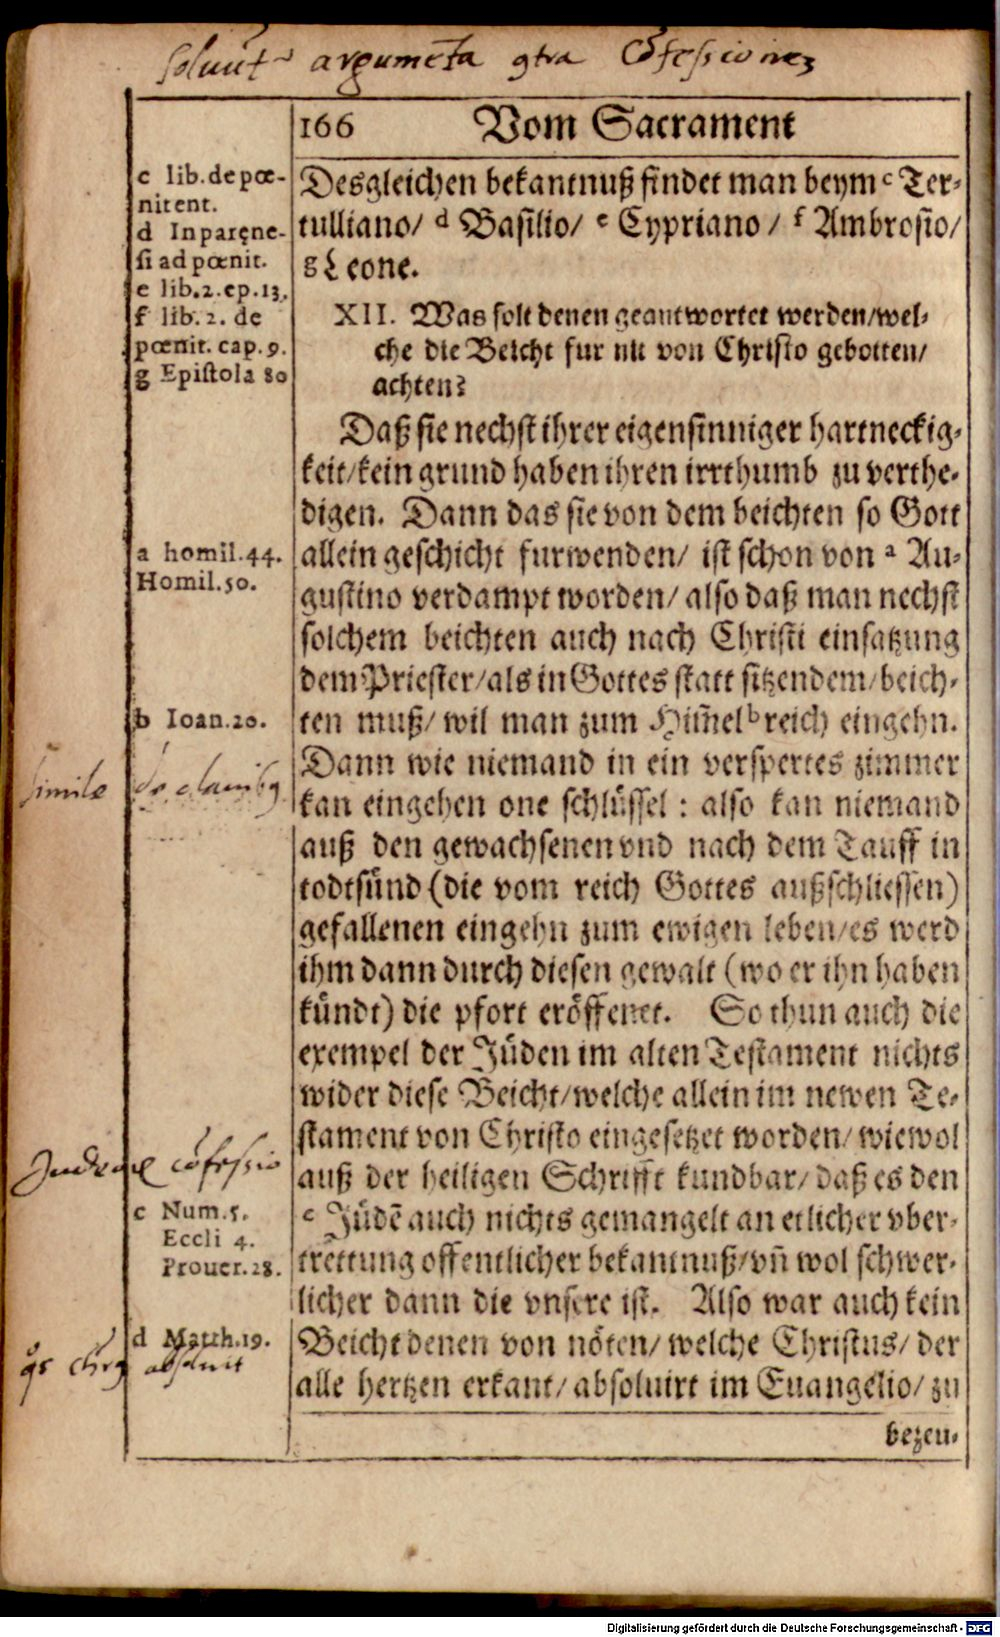 Soluūt argumēta 9tra Cōfessionez
166 Vom Sacrament
c lib. de pœ-
nitent.
d In paręne-
si ad pœnit.
e lib. 2. ep. 13.
f lib. 2. de
pœnit. cap. 9.
g Epistola 80
Desgleichen bekantnuß findet man beym c Ter-
tulliano/ d Basilio/ e Cypriano / f Ambrosio/
g Leone.
XII. Was solt denen geantwortet werden/wel-
che die Beicht fur nit von Christo gebotten/
achten?
Daß sie nechst ihrer eigensinniger hartneckig-
keit/kein grund haben ihren irrthumb zu verthe-
digen. Dann das sie von dem beichten so Gott
a homil. 44.
Homil. 50.
allein geschicht furwenden/ ist schon von a Au-
gustino verdampt worden/ also daß man nechst
solchem beichten auch nach Christi einsatzung
dem Priester/als in Gottes statt sitzendem/beich-
b Ioan. 20.
ten muß/ wil man zum Him̃el b reich eingehn.
Dann wie niemand in ein verspertes zimmer
simile de clauib9
kan eingehen one schlüssel : also kan niemand
auß den gewachsenen vnd nach dem Tauff in
todtsünd (die vom reich Gottes außschliessen)
gefallenen eingehn zum ewigen leben/es werd
ihm dann durch diesen gewalt (wo er ihn haben
kündt) die pfort eröffenet. So thun auch die
exempel der Jüden im alten Testament nichts
wider diese Beicht/welche allein im newen Te-
stament von Christo eingesetzet worden/ wiewol
cōfessio
auß der heiligen Schrifft kundbar/ daß es den
c Num. 5.
Eccli 4.
Prouer. 28.
c Jüdē auch nichts gemangelt an etlicher vber-
trettung offentlicher bekantnuß/vñ wol schwer-
licher dann die vnsere ist. Also war auch kein
d Matth. 19.
absoluit
Beicht denen von nöten/ welche Christus/ der
alle hertzen erkant/ absoluirt im Euangelio/ zu
bezeu-
Digitalisierung gefördert durch die Deutsche Forschungsgemeinschaft - DFG